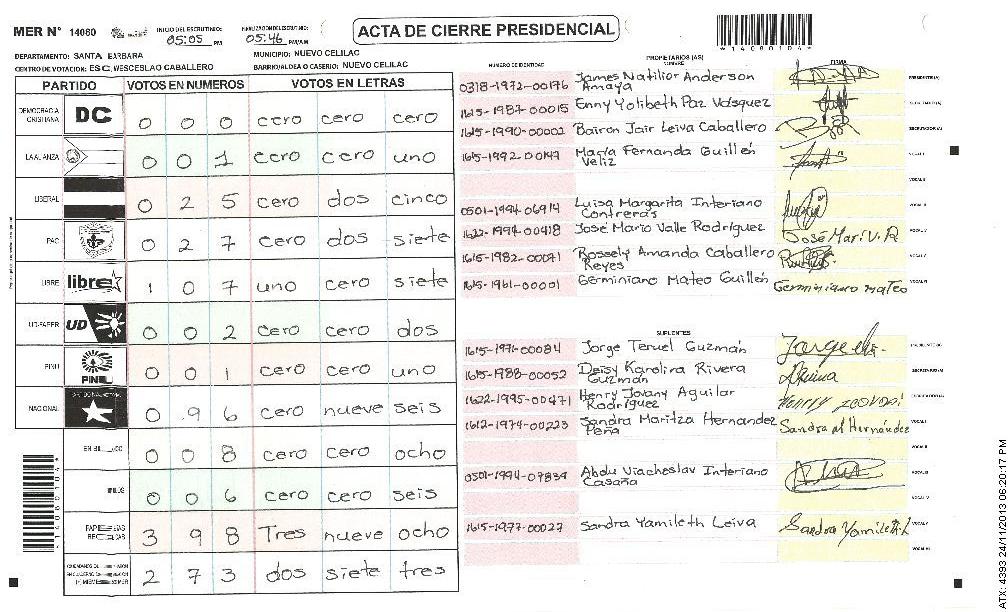 MER Nº 14080
INICIO DEL ESCRUTINIO: 05:05 PM
FINALIZACION DEL ESCRUTINIO: 05:46 PM/AM
ACTA DE CIERRE PRESIDENCIAL
*14080104*
DEPARTAMENTO: SANTA BARBARA
MUNICIPIO: NUEVO CELILAC
CENTRO DE VOTACION: ESC. WESCESLAO CABALLERO
BARRIO/ALDEA O CASERIO: NUEVO CELILAC
PARTIDO VOTOS EN NUMEROS VOTOS EN LETRAS
DEMOCRACIA CRISTIANA DC 0 0 0 cero cero cero
LA ALIANZA 0 0 1 cero cero uno
LIBERAL 0 2 5 cero dos cinco
PAC 0 2 7 cero dos siete
LIBRE libre 1 0 7 uno cero siete
UD-FAPER UD 0 0 2 cero cero dos
PINU PINU 0 0 1 cero cero uno
NACIONAL 0 9 6 cero nueve seis
0 0 8 cero cero ocho
0 0 6 cero cero seis
3 9 8 Tres nueve ocho
2 7 3 dos siete tres
NUMERO DE IDENTIDAD PROPIETARIOS (AS) NOMBRE FIRMA
0318-1972-00176 James Natilior Anderson Amaya PRESIDENTE(A)
1615-1987-00015 Enny Yolibeth Paz Vásquez
1615-1990-00002 Bairon Jair Leiva Caballero SECRETARIO(A)
1615-1992-00147 María Fernanda Guillén Veliz VOCAL I
VOCAL II
0501-1994-06914 Luisa Margarita Interiano Contreras VOCAL III
1622-1994-00418 José Mario Valle Rodríguez José Mari V.R VOCAL IV
1615-1982-00071 Rossely Amanda Caballero Reyes VOCAL V
1615-1961-00001 Germiniano Mateo Guillén Germiniano Mateo VOCAL VI
SUPLENTES
1615-1971-00084 Jorge Teruel Guzmán
1615-1988-00052 Deisy Karolina Rivera Guzmán
1622-1995-00471 Henry Jovany Aguilar Rodríguez
1612-1974-00223 Sandra Maritza Hernandez Peña Sandra M Hernández VOCAL I
VOCAL II
0501-1994-07834 Abdu Viacheslav Interiano Casaña VOCAL III
VOCAL IV
1615-1977-00027 Sandra Yamileth Leiva Sandra Yamileth.L VOCAL V
VOCAL VI
ATX: 4393 24/11/2013 06:20:17 PM